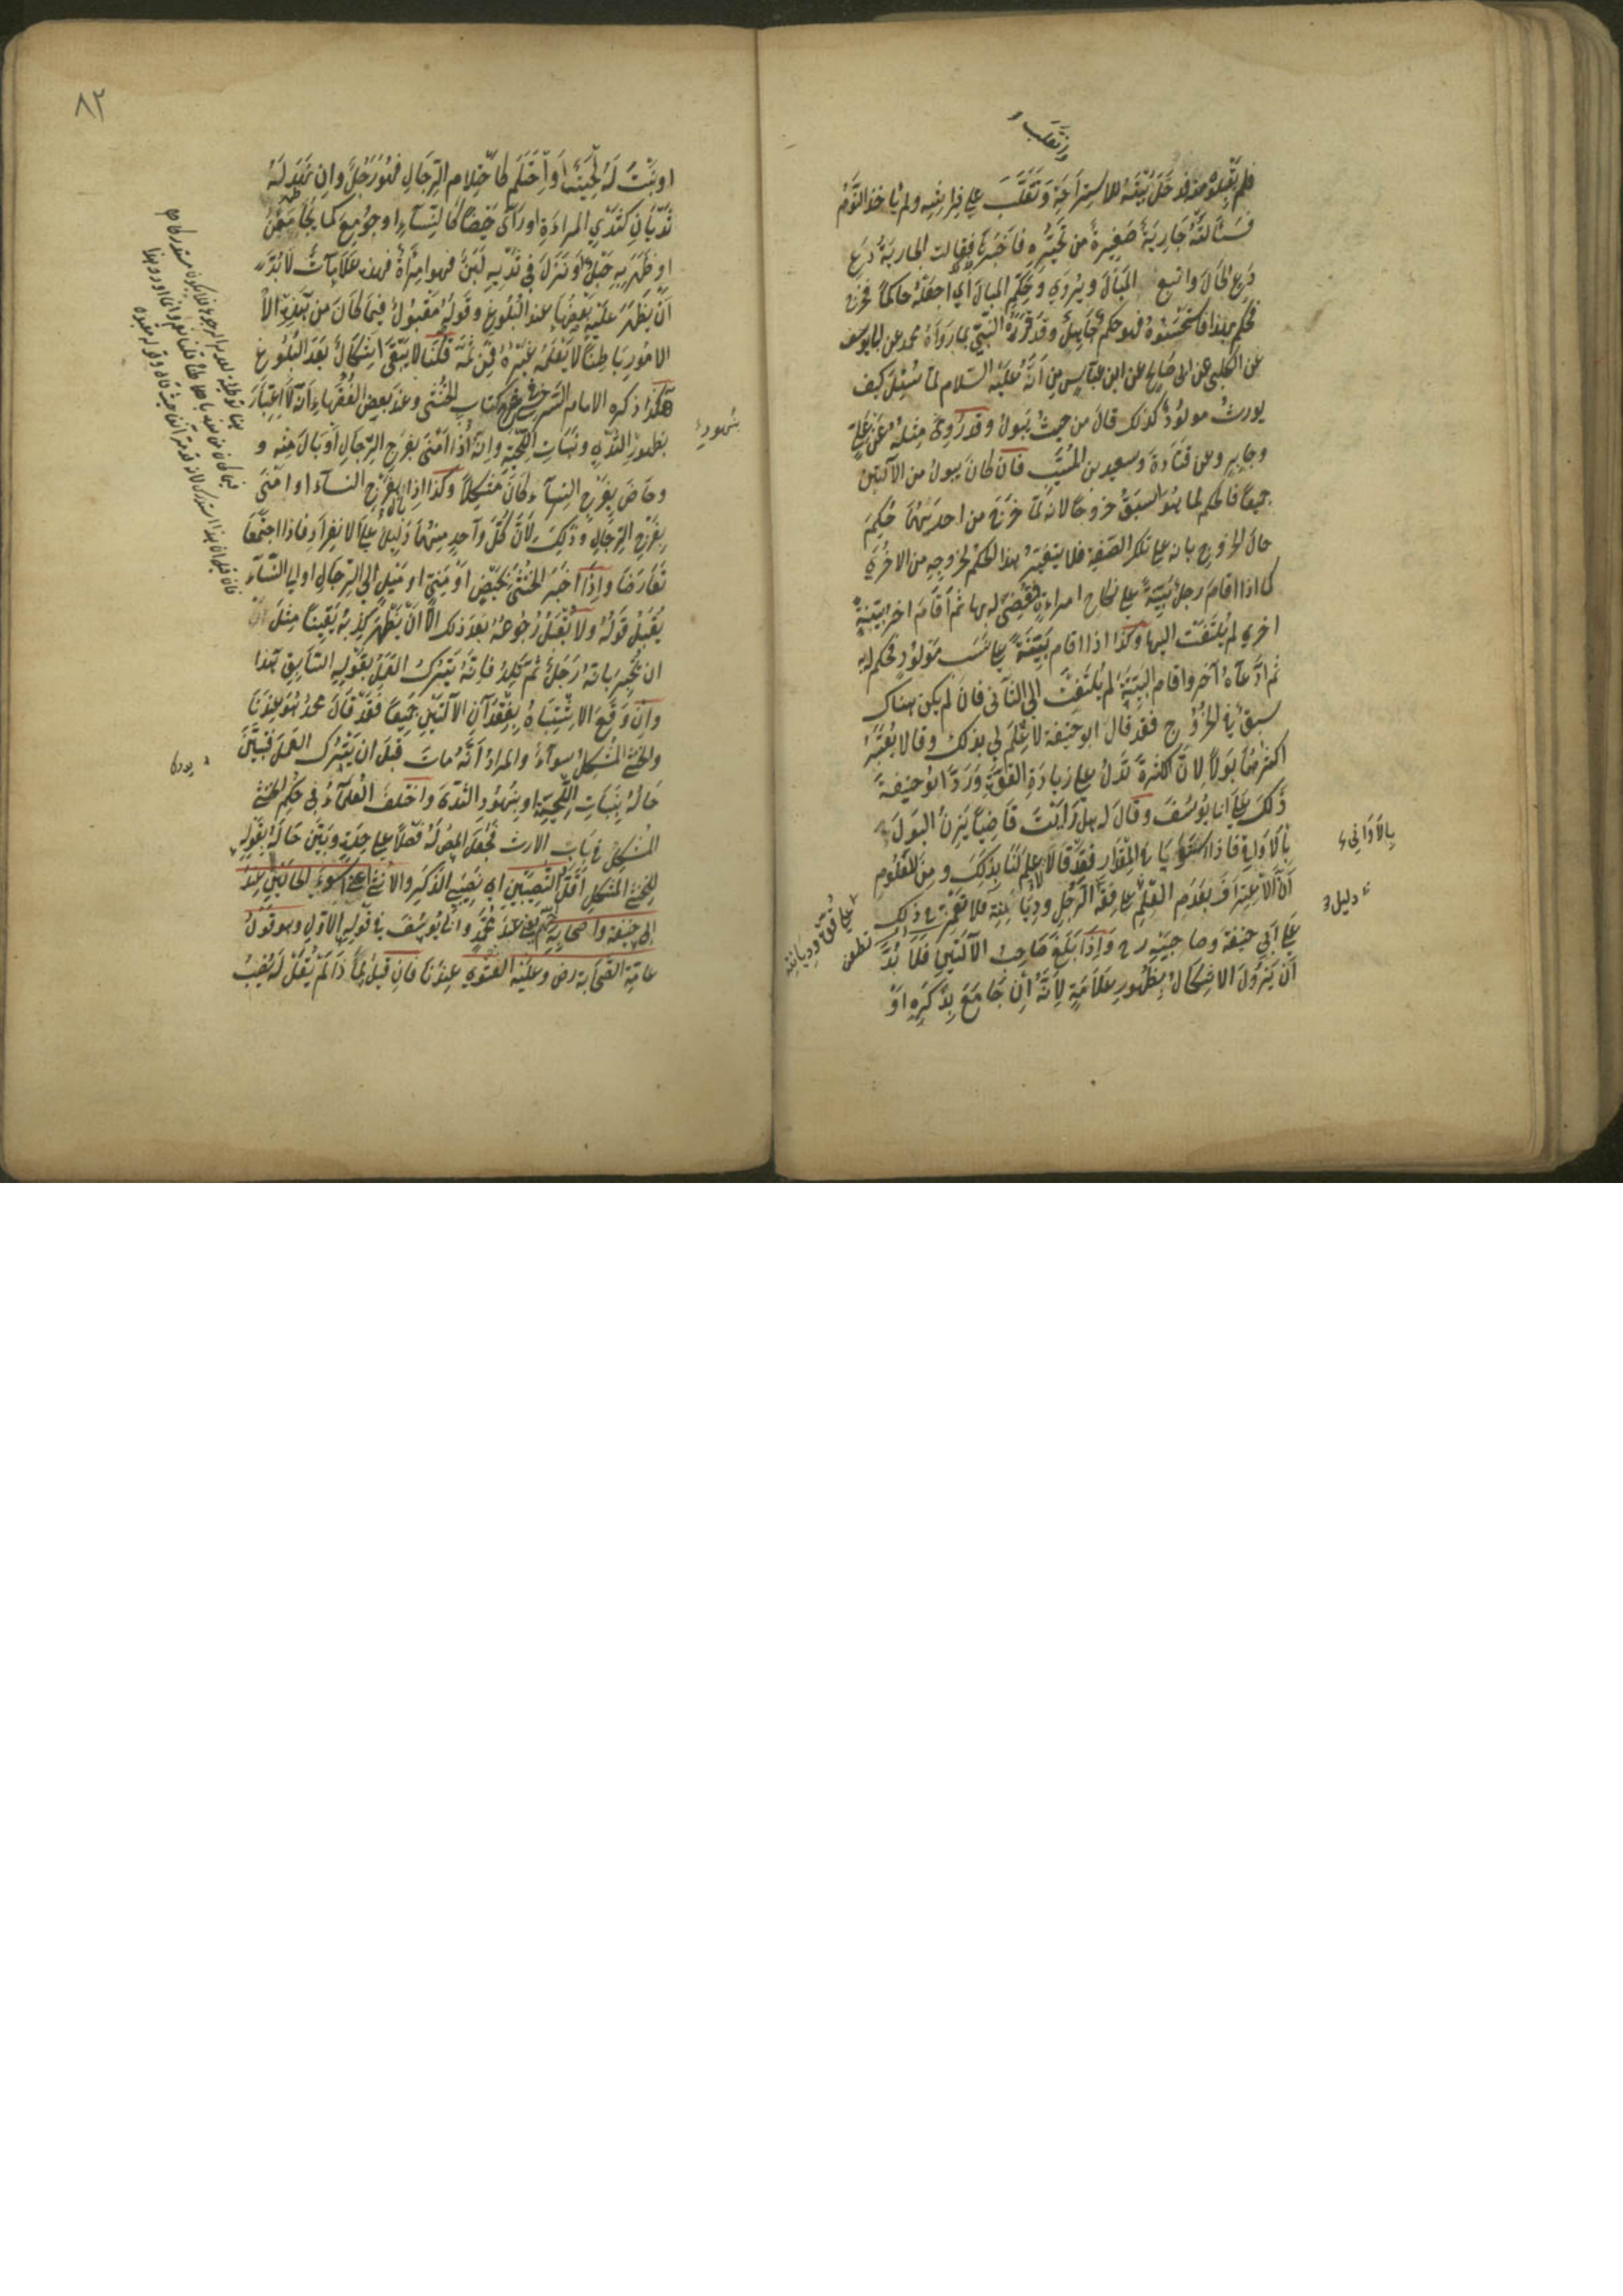 وتقلب
فلم يقبلوه منه فدخل بيته للاستراحة وتقلب على فراشه ولم ياخذ النوم
فسألته جارية صغيرة من تحيره فاخبرها فقالت الجارية دع
دع الحال واتبع المبال ويروي وحكم المبال اي اجعله حاكما فخرج
فحكم بهذا فاستحسنوه فهو حكم جاهلي وقد قرره النبي بما رواه محمد عن ابي يوسف
عن الكلبي عن ابي صالح عن ابن عباس رض انه عليه السلام لما سئل كيف
يورث مولود كذلك قال من حيث يبول وقد روي مثله عن علي
وجابر وعن قتادة وسعيد بن المسيب فان كان يبول من الآلتين
جميعا فالحكم لما هو اسبق خروجا لانه لما خرج من احديهما حكم
حال الخروج بانه على تلك الصفة فلا يتغير هذا الحكم لخروجه من الاخري
كما اذا اقام رجل بينة على نكاح امراءة فقضي له بها ثم اقام اخر بينة
اخري لم يلتفت اليها وكذا اذا اقام بينة على نسب مولود فحكم له به
ثم ادعاه آخر واقام البينة لم يلتفت الي الثاني فان لم يكن هناك
سبق في الخروج فقد قال ابو حنيفة لا علم لي بذلك وقالا يعتبر
اكثرهما بولا لان الكثرة تدل على زيادة القوة ورد ابو حنيفة
ذلك على ابا يوسف وقال له هل رايت قاضيا يزن البول
بالاواني فاذا استويا في المقدار فقد قالا لا علم لنا بذلك ومن المعلوم
ان الاعتراف بعدم العلم على فقه الرجل وديانته فلا تغتر في ذلك
على ابي حنيفة وصاحبيه رح واذا بلغ صاحب الآلتين فلا بد
ان يزول الاشكال بظهور علامة لانه ان جامع بذكره او
بالاواني
دليل
على فقه وديانته
تطعن
٨٢
او نبتت له لحية او احتلم كاحتلام الرجال فهو رجل وان نهد له
ثديان كثدي المراءة او رأى حيضا كالنساء او جومع كما يجامعن
او ظهر به حبل او نزل في ثدييه لبن فهو امرأة فهذه علامات لا بد
ان يظهر عليه بعضها عند البلوغ وقوله مقبول فيما كان من هذه الا
الامور باطنا لا يعلمه غيره فمن ثمة قلنا لا يبقى اشكال بعد البلوغ
هكذا ذكره الامام السرخسي في شرح كتاب الخنثى وعند بعض الفقهاء انه لا اعتبار
بظهور الثدي ونبات اللحية وانه اذا امنى بفرج الرجال او بال منه و
وحاض بفرج النساء كان مشكلا وكذا اذا بال بفرج النساء او امنى
بفرج الرجال وذلك لان كل واحد منهما دليل على الانفراد فاذا اجتمعا
تعارضا واذا اخبر الخنثى بحيض او مني او ميل الى الرجال او الى النساء
يقبل قوله ولا يقبل رجوعه بعد ذلك الا ان يظهر كذبه يقينا مثل
ان يخبر بانه رجل ثم تلد فانه يترك العمل بقوله السابق هذا
وان وقع الاشتباه بفقدان الآلتين جميعا فقد قال محمد هو عندنا
والخنثى المشكل سواء والمراد انه مات قبل ان يترك العمل فتبين
حاله بنبات اللحية او بنهود الثدي واختلف العلماء في حكم الخنثى
المشكل في باب الارث فجعل المص له فصلا على حدة وبين حاله بقوله
للخنثى المشكل اقل النصيبين اي نصيبي الذكر والانثى اعني اسوء الحالتين عند
ابي حنيفة واصحابه رحمهم يعني عند محمد وابا يوسف في قوله الاول وهو قول
عامة الصحابة رض وعليه الفتوي عندنا فان قيل لما ذا لم يقل له نصيب
بنهود
يدرك